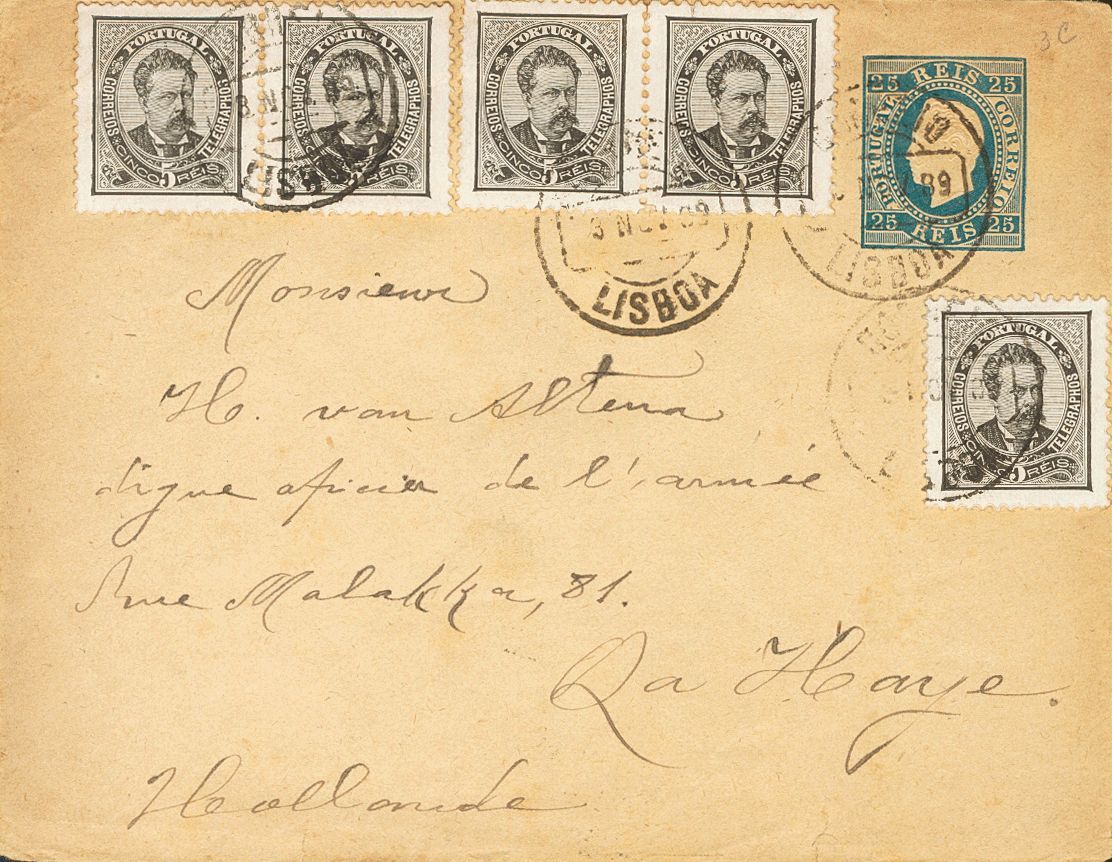 3C
PORTUGAL
CORREIOS TELEGRAPHOS
CINCO REIS
5
PORTUGAL
CORREIOS TELEGRAPHOS
CINCO REIS
5
PORTUGAL
CORREIOS TELEGRAPHOS
CINCO REIS
5
PORTUGAL
CORREIOS TELEGRAPHOS
CINCO REIS
5
25 REIS 25
PORTUGAL CORREIO
25 REIS 25
LISBOA
3 NOV 89
LISBOA
89
LISBOA
PORTUGAL
CORREIOS TELEGRAPHOS
CINCO REIS
5
Monsieur
H. van Altena
digne oficier de l'armée
Rue Malakka, 81.
La Haye.
Hollande